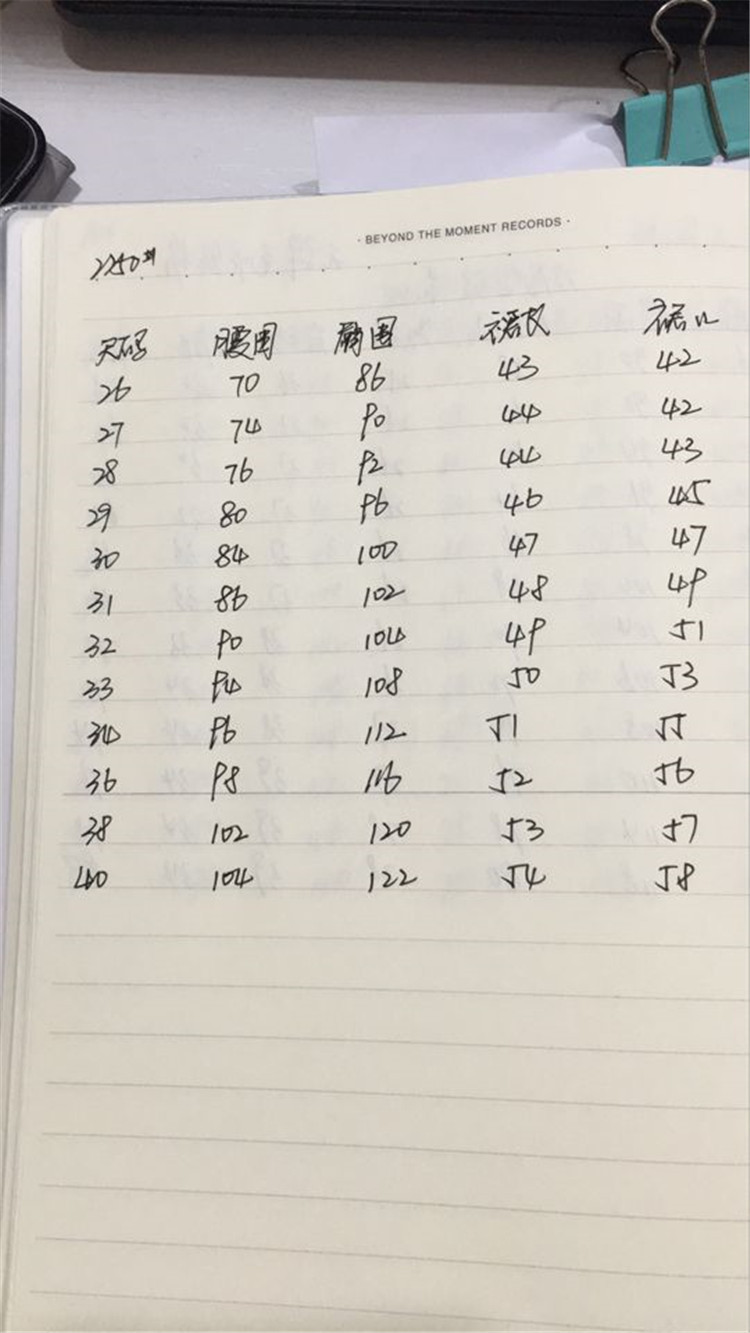 · BEYOND THE MOMENT RECORDS ·
2250#
尺码 腰围 臀围 裙长 裙口
26 70 86 43 42
27 74 90 44 42
28 76 92 44 43
29 80 96 46 45
30 84 100 47 47
31 86 102 48 49
32 90 104 49 51
33 94 108 50 53
34 96 112 51 55
36 98 116 52 56
38 102 120 53 57
40 104 122 54 58